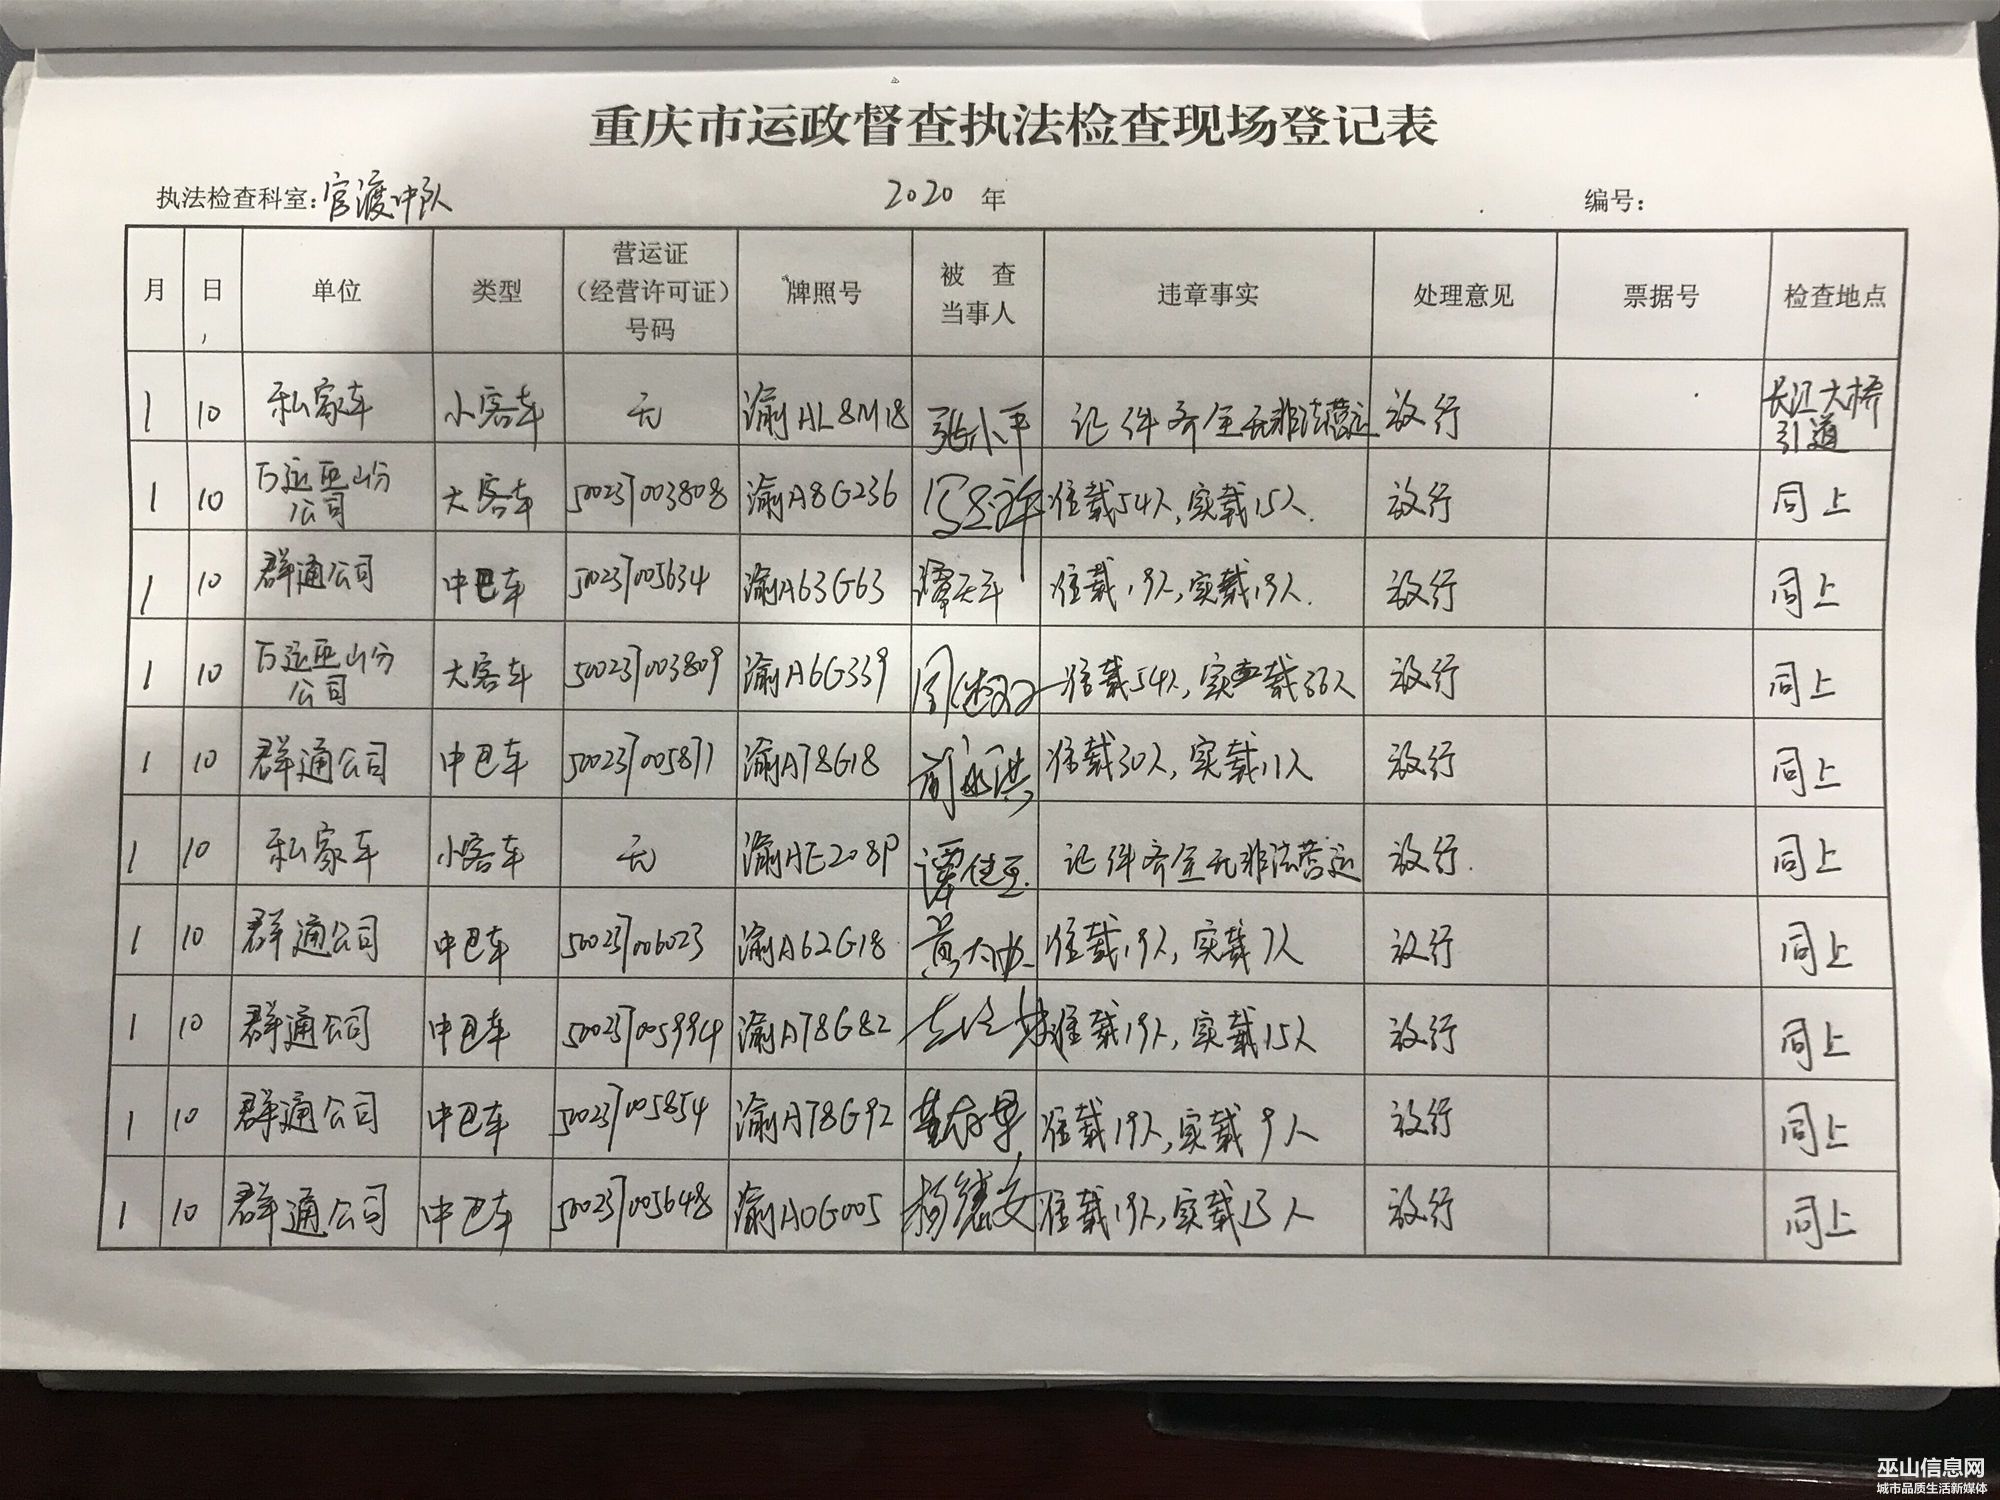 重庆市运政督查执法检查现场登记表
执法检查科室：官渡中队 2020 年 编号：
月 日 单位 类型 营运证（经营许可证）号码 牌照号 被查当事人 违章事实 处理意见 票据号 检查地点
1 10 私家车 小客车 无 渝AL8M18 张小平 证件齐全无非法营运 放行 长江大桥引道
1 10 万运巫山分公司 大客车 500237003808 渝A8G236 准载54人,实载15人. 放行 同上
1 10 群通公司 中巴车 500237005634 渝A63G63 准载19人,实载19人. 放行 同上
1 10 万运巫山分公司 大客车 500237003809 渝A6G339 准载54人,实载36人 放行 同上
1 10 群通公司 中巴车 500237005871 渝A78G18 准载30人,实载11人 放行 同上
1 10 私家车 小客车 无 渝AE208P 谭 证件齐全无非法营运 放行. 同上
1 10 群通公司 中巴车 500237006023 渝A62G18 黄大 准载19人,实载7人 放行 同上
1 10 群通公司 中巴车 500237005994 渝A78G82 准载19人,实载15人 放行 同上
1 10 群通公司 中巴车 500237005854 渝A78G92 准载19人,实载9人 放行 同上
1 10 群通公司 中巴车 500237005648 渝A0G005 杨继安 准载19人,实载13人 放行 同上
巫山信息网
城市品质生活新媒体